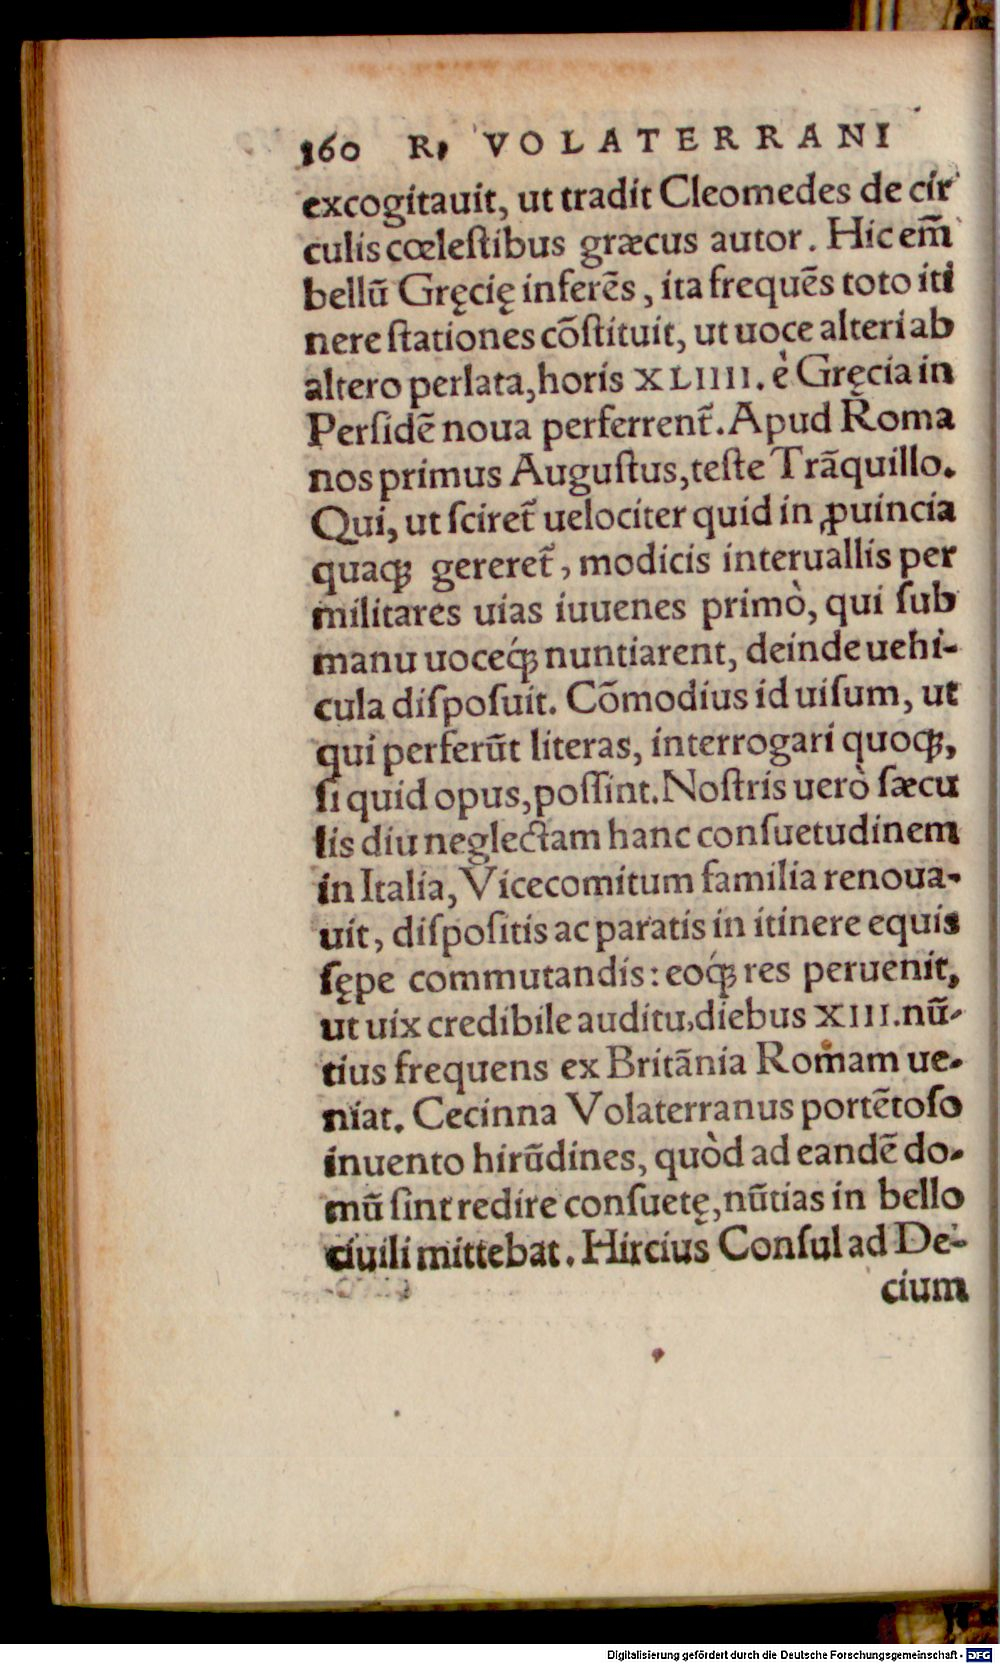 160 R. VOLATERRANI
excogitauit, ut tradit Cleomedes de cir
culis cœleſtibus græcus autor. Hic em̃
bellũ Gręcię inferẽs, ita frequẽs toto iti
nere ſtationes cõſtituit, ut uoce alteri ab
altero perlata, horis XLIIII. è Gręcia in
Perſidẽ noua perferrent̃. Apud Roma
nos primus Auguſtus, teſte Trãquillo.
Qui, ut ſciret̃ uelociter quid in ꝓuincia
quaqꝫ gereret̃, modicis interuallis per
militares uias iuuenes primò, qui ſub
manu uoceq́ꝫ nuntiarent, deinde uehi-
cula diſpoſuit. Cõmodius id uiſum, ut
qui perferũt literas, interrogari quoqꝫ,
ſi quid opus, poſſint. Noſtris uerò ſæcu
lis diu neglectam hanc conſuetudinem
in Italia, Vicecomitum familia renoua-
uit, diſpoſitis ac paratis in itinere equis
ſępe commutandis: eoq́ꝫ res peruenit,
ut uix credibile auditu, diebus XIII. nũ-
tius frequens ex Britãnia Romam ue-
niat. Cecinna Volaterranus portẽtoſo
inuento hirũdines, quòd ad eandẽ do-
mũ ſint redire conſuetę, nũtias in bello
ciuili mittebat. Hircius Conſul ad De-
cium
Digitalisierung gefördert durch die Deutsche Forschungsgemeinschaft - DFG